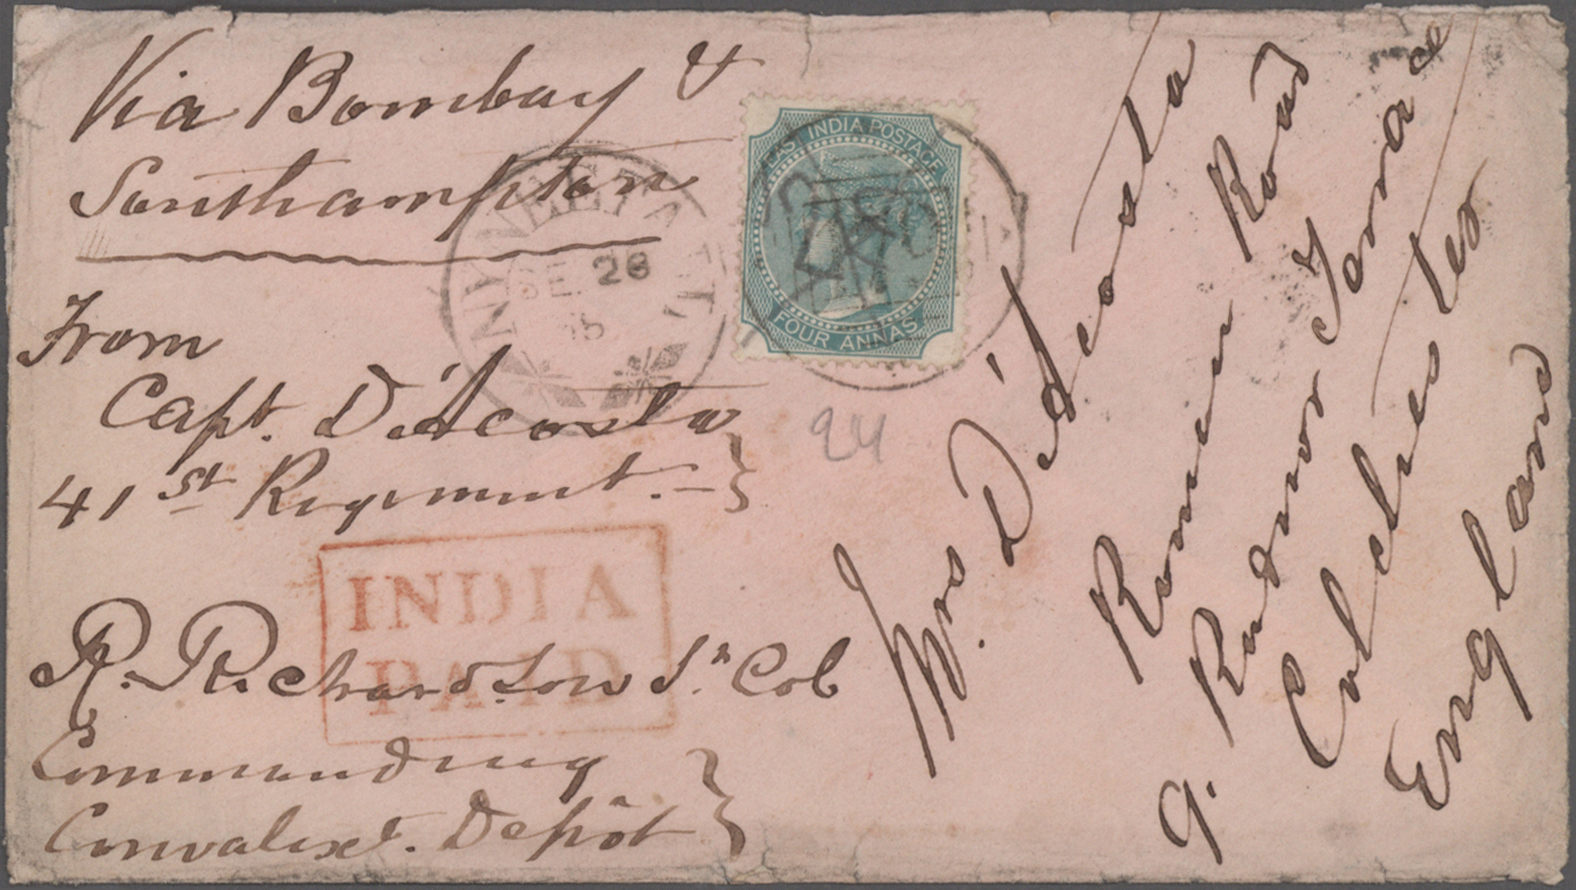 Via Bombay &
Southampton
From
Capt. D'Acosta
41st Regiment.
R. Richardson Lt. Col
Commanding
Convalest. Depôt
NYNEE TAL
SE 26
EAST INDIA POSTAGE
FOUR ANNAS
INDIA
PAID
24
Mrs D'Acosta
Roman Road
9. Radnor Terrace
Colchester
England